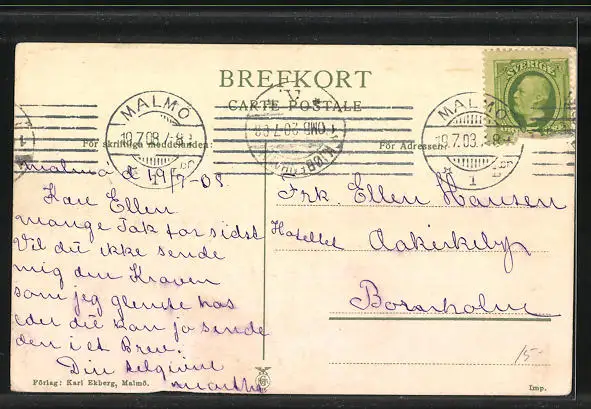 BREFKORT
CARTE POSTALE
SVERIGE
MALMÖ
19.7.08.
MALMÖ
19.7.08.
1
För skriftliga meddelanden:
För Adressen:
Malmö d 19/7-08.
Kære Ellen
mange Tak for sidst
Vil du ikke sende
mig den Kraven
som jeg glemte hos
eder du kan jo sende
den i et Brev.
Din
Marthe
Frk. Ellen Hansen
Hotellet Aakirkeby
Bornholm
15-
Förlag: Karl Ekberg, Malmö.
Imp.